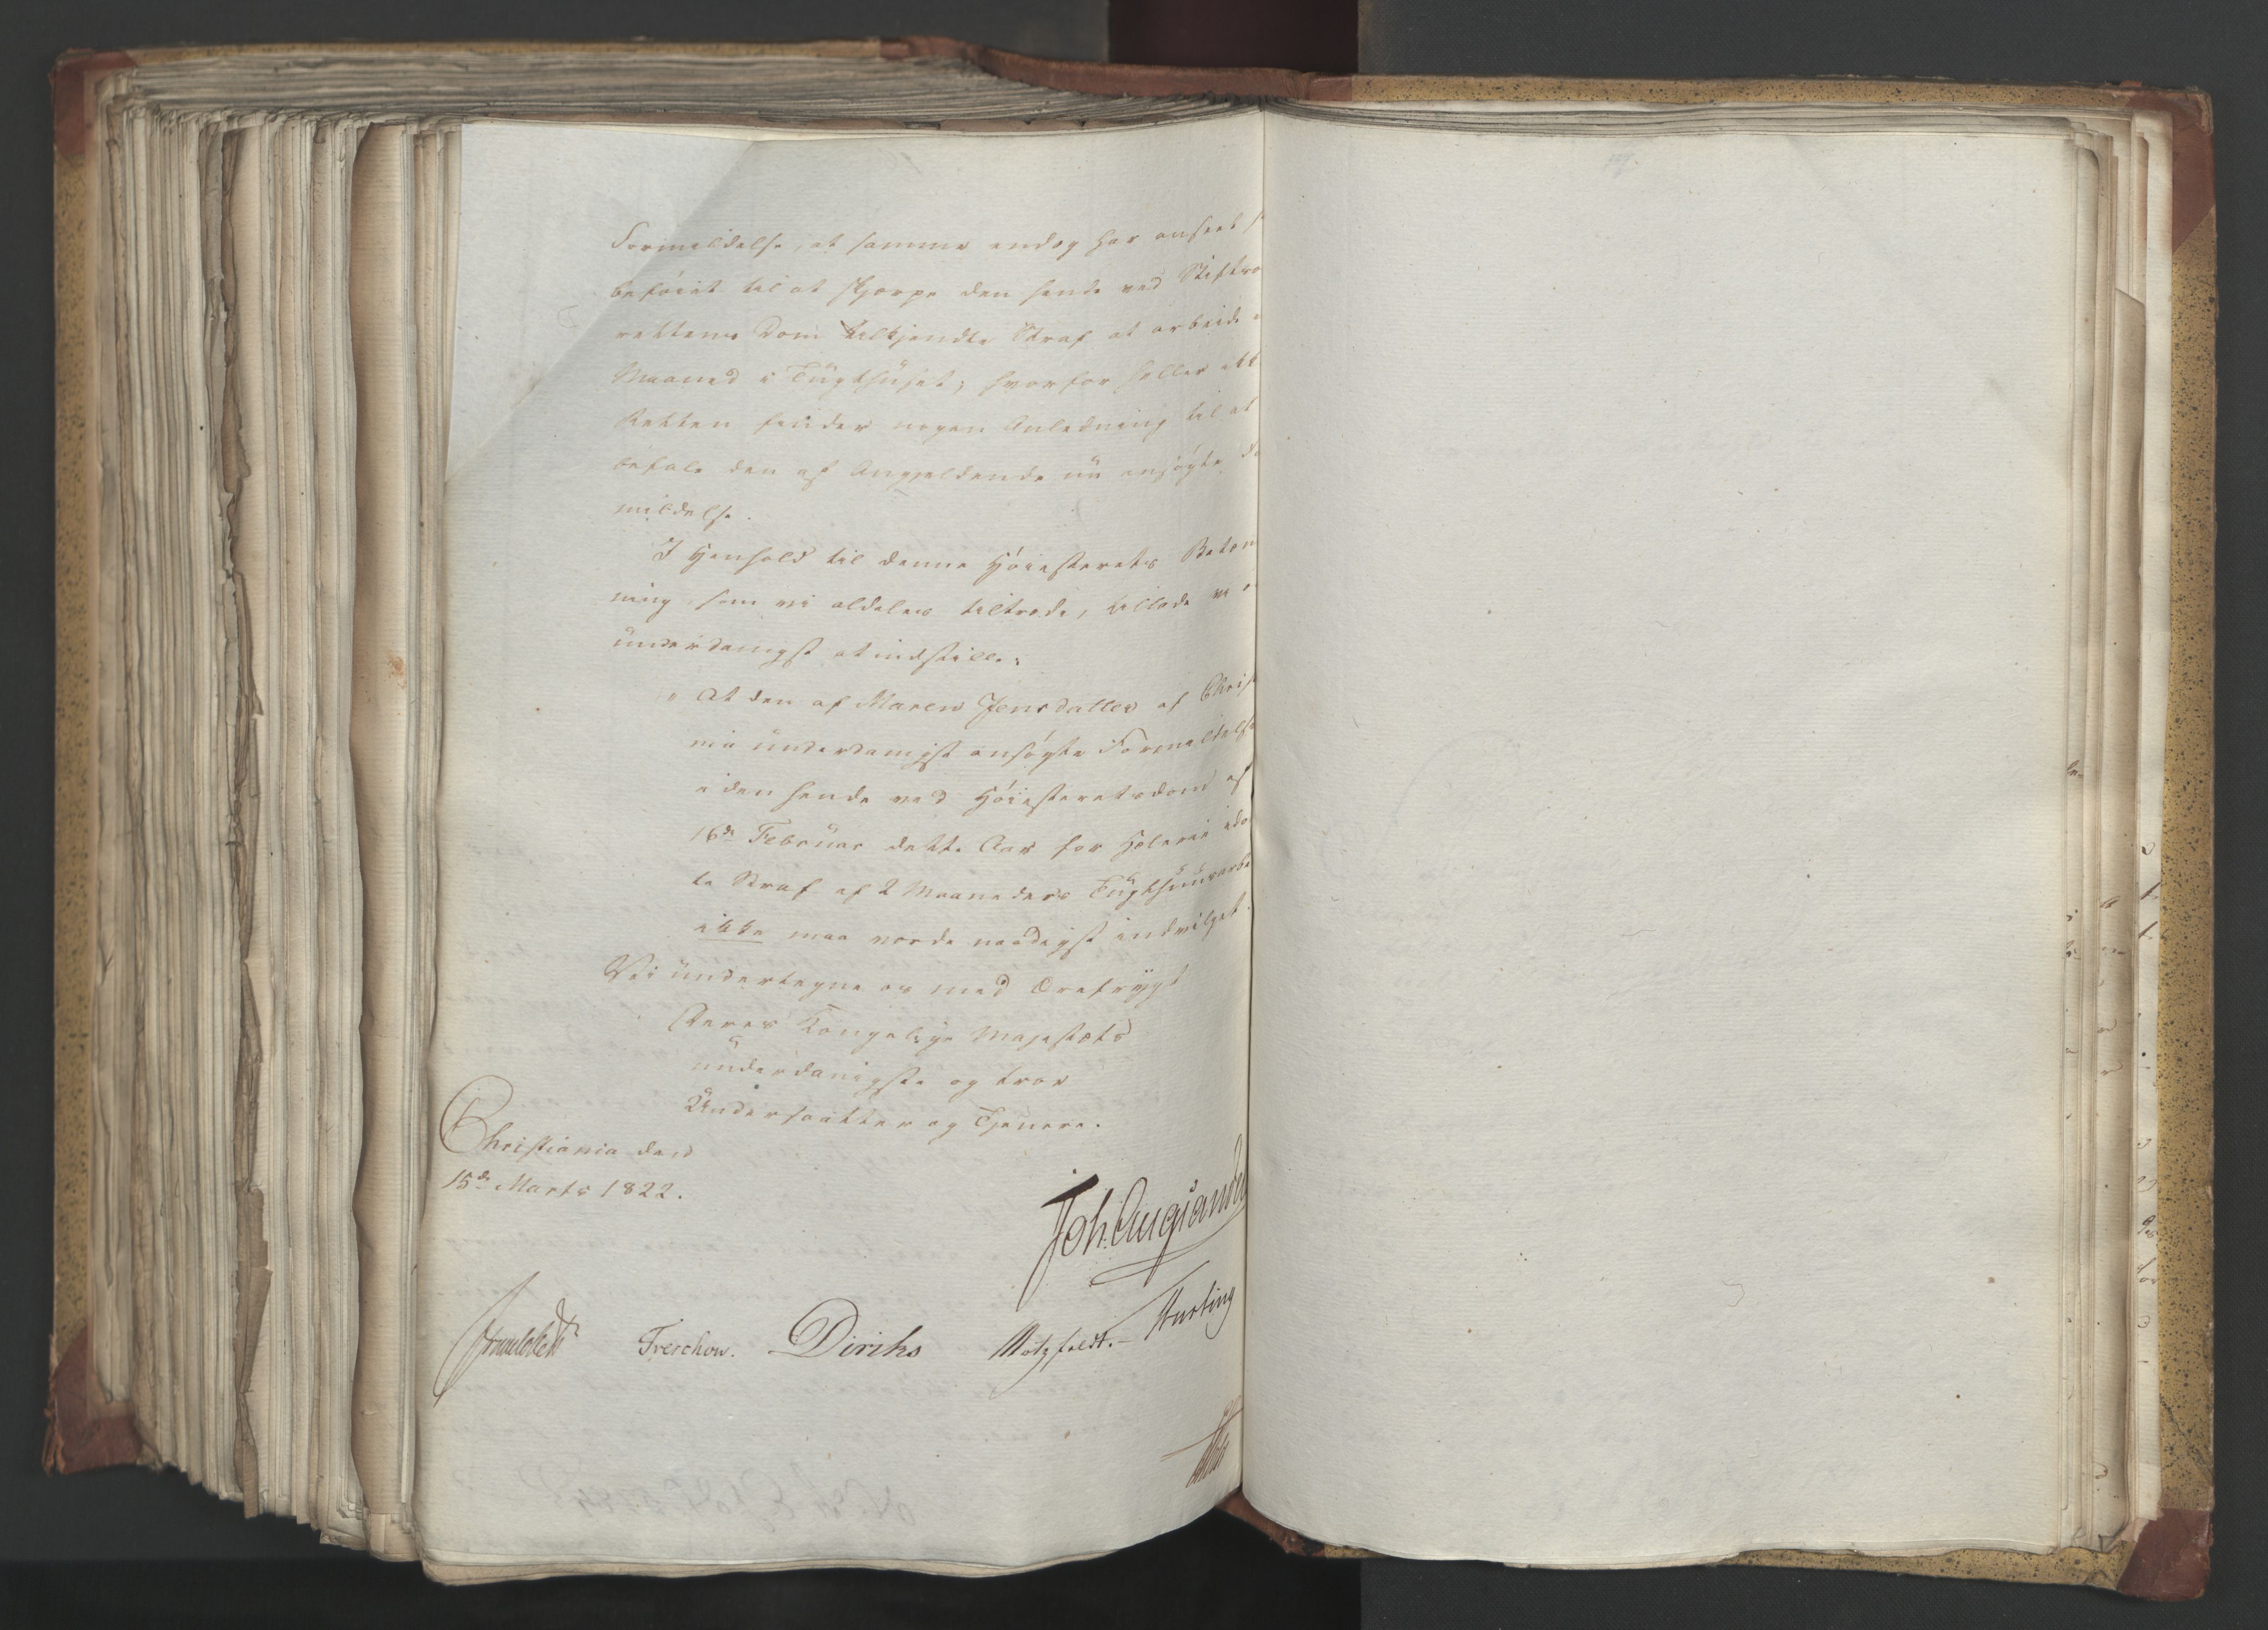 Formildelse, at samme endog har anseet
beføiet til at skjærpe den hende ved Stifts
rettens Dom tilkjendte Straf at arbeide
Maaned i Tügthüset; hvorfor heller ikke
Retten finder nogen Anledning til at
befale den af Angjeldende nü ansøgte
mildelse.
I Henhold til denne Høiesterets Betæn
ning som vi aldeles tiltræde, tillade vi
ünderdanigst at indstille:
" At den af Maren Jensdatter af Chris
nia ünderdanigst ansøgte Formildelse
i den hende ved Høiesteretsdom af
16de Februar dette Aar for Hæleri idø
te Straf af 2 Maaneders Tügthuusarbe
ikke maa vorde naadigst indvilget.
Vi ündertegne os med Ærefrygt
Deres Kongelige Majestæts
ünderdanigste og troe
Undersaatter og Tjenere.
Christiania den
15de Marts 1822.
Joh. Aug. Sandels
Treschow. Diriks Motzfeldt. Hurting